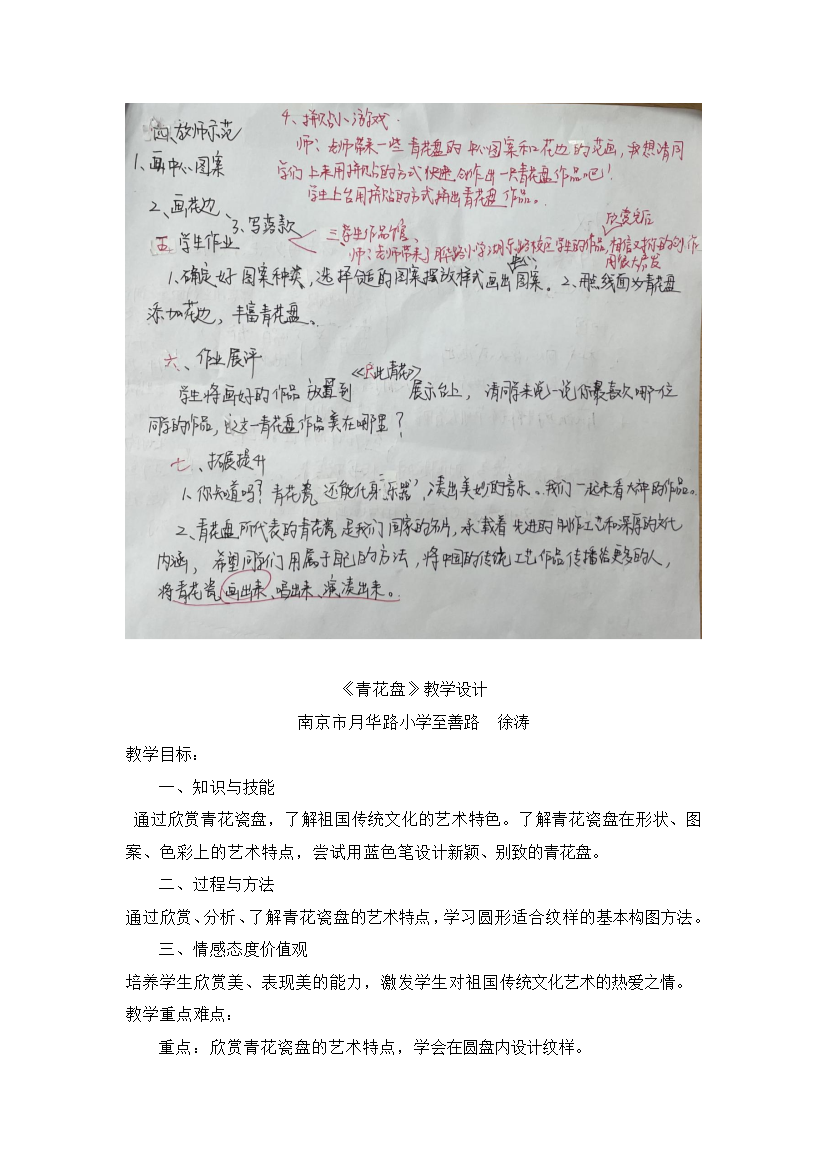 四、教师示范
1、画中心图案
2、画花边、3、写落款
4、拼贴小游戏.
师：老师带来一些青花盘的中心图案和花边的花画，我想请同
学们上来用拼贴的方式快速创作出一只青花盘作品吧！
学生上台用拼贴的方式拼出青花盘作品。
五、学生作业
三、学生作品馆、
欣赏完后
1、确定好图案种类，选择合适的图案摆放样式画出图案。2、用点线面为青花盘
添加花边，丰富青花盘。
六、作业展评
学生将画好的作品放置到《只此青花》展示台上，请同学来说一说你最喜欢哪一位
同学的作品，这一青花盘作品美在哪里？
七、拓展提升
1、你知道吗？青花瓷还能化身“乐器”，凑出美妙的音乐。我们一起来看大神的作品。
2、青花盘所代表的青花瓷是我们国家的名片，承载着先进的制作工艺和深厚的文化
内涵，希望同学们用属于自己的方法，将中国的传统工艺作品传播给更多的人，
将青花瓷画出来、唱出来、演凑出来。
《青花盘》教学设计
南京市月华路小学至善路 徐涛
教学目标：
一、知识与技能
通过欣赏青花瓷盘，了解祖国传统文化的艺术特色。了解青花瓷盘在形状、图
案、色彩上的艺术特点，尝试用蓝色笔设计新颖、别致的青花盘。
二、过程与方法
通过欣赏、分析、了解青花瓷盘的艺术特点，学习圆形适合纹样的基本构图方法。
三、情感态度价值观
培养学生欣赏美、表现美的能力，激发学生对祖国传统文化艺术的热爱之情。
教学重点难点：
重点：欣赏青花瓷盘的艺术特点，学会在圆盘内设计纹样。